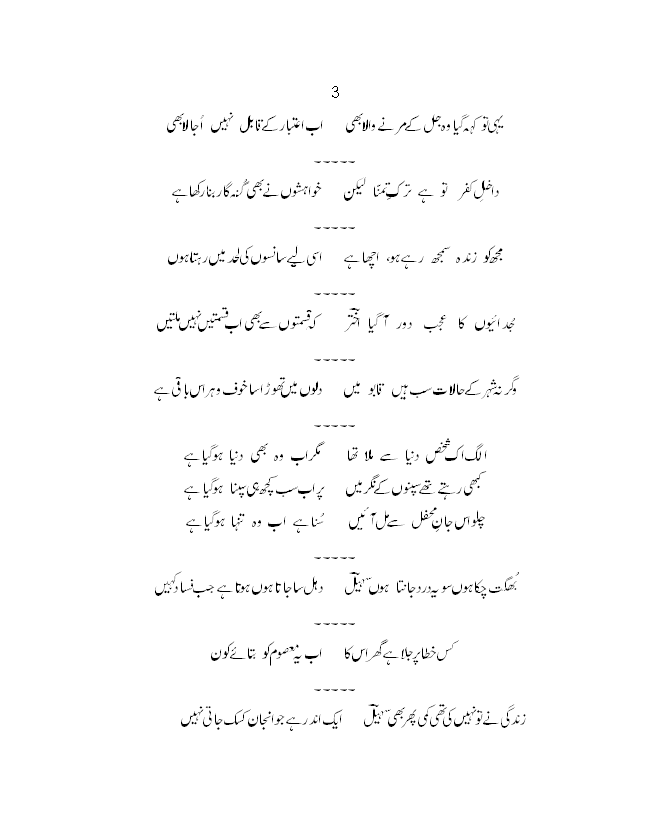 3
یہی تو کہہ گیا وہ جل کے مرنے والا بھی اب اعتبار کے قابل نہیں اُجالا بھی
-----
داخلِ کفر تو ہے ترکِ تمنّا لیکن خواہشوں نے بھی گُنہ گار بنا رکھا ہے
-----
مجھ کو زندہ سمجھ رہے ہو، اچھا ہے اسی لیے سانسوں کی لحد میں رہتا ہوں
-----
جُدائیوں کا عجب دور آ گیا اخترؔ کہ قسمتوں سے بھی اب قسمتیں نہیں ملتیں
-----
وگرنہ شہر کے حالات سب ہیں قابو میں دلوں میں تھوڑا سا خوف و ہراس باقی ہے
-----
الگ اک شخص دنیا سے ملا تھا مگر اب وہ بھی دنیا ہو گیا ہے
کبھی رہتے تھے سپنوں کے نگر میں پر اب سب کچھ ہی سپنا ہو گیا ہے
چلو اس جانِ محفل سے مل آئیں سُنا ہے اب وہ تنہا ہو گیا ہے
-----
بُھگت چکا ہوں سو یہ درد جانتا ہوں سہیلؔ دہل سا جاتا ہوں ہوتا ہے جب فساد کہیں
-----
کس خطا پر جلا ہے گھر اس کا اب یہ معصوم کو بتائے کون
-----
زندگی نے تو نہیں کی تھی کمی پھر بھی سہیلؔ ایک اندر ہے جو انجان کسک جاتی نہیں